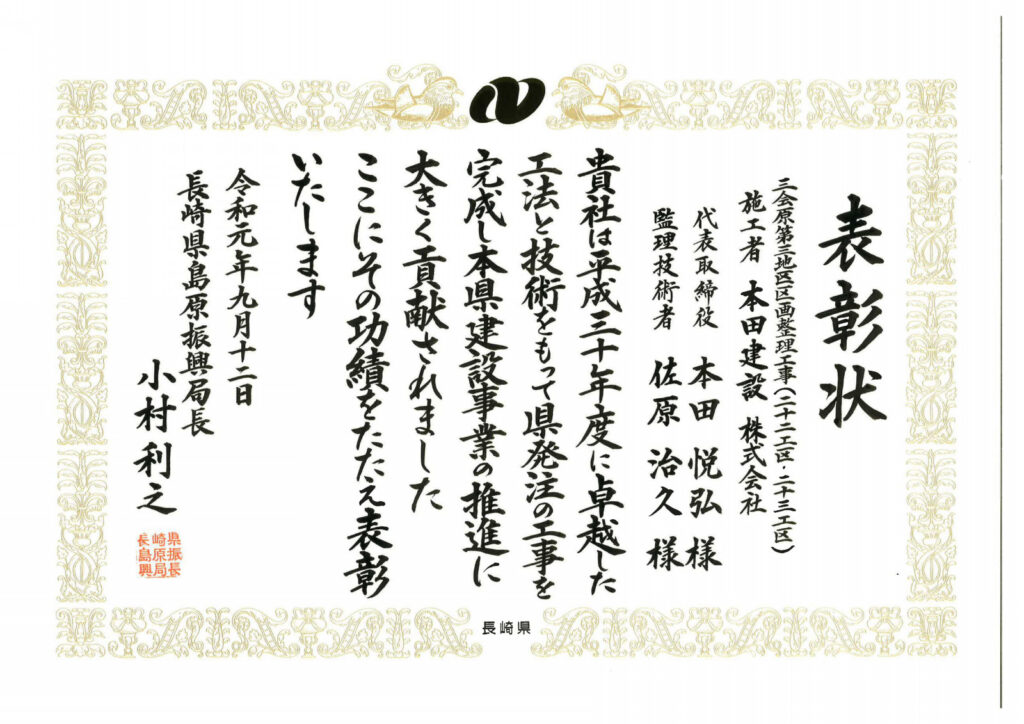 表彰状
三会原第三地区区画整理工事(二十二工区・二十三工区)
施工者 本田建設 株式会社
代表取締役 本田 悦弘 様
監理技術者 佐原 治久 様
貴社は平成三十年度に卓越した
工法と技術をもって県発注の工事を
完成し本県建設事業の推進に
大きく貢献されました
ここにその功績をたたえ表彰
いたします
令和元年九月十二日
長崎県島原振興局長
小村利之
県振長
崎原局
長島興
長崎県